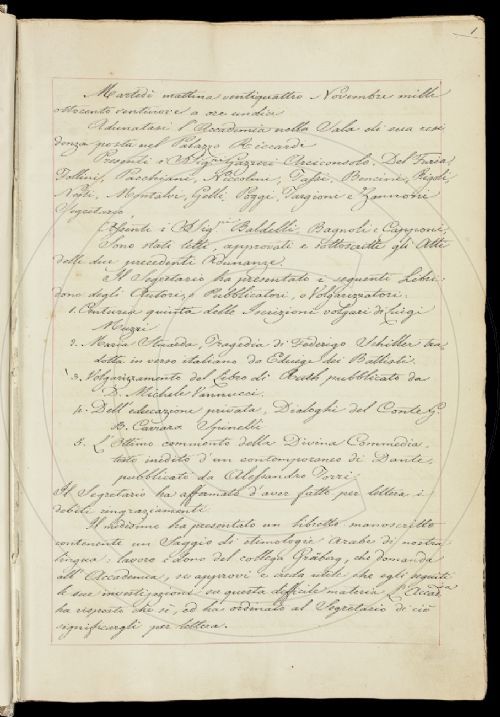 1
Martedì mattina ventiquattro Novembre mille
ottocento a ore undici
Adunatasi l'Accademia nella Sala di sua resi
denza posta nel Palazzo Riccardi
Presenti i Sigri Gazzeri Arciconsolo, Del Furia,
Follini, Pacchiani, Niccolini, Tassi, Bencini, Rigoli,
Nesti, Montalvi, Gelli, Poggi, Targioni e Zannoni
Segretario,
Assenti i Sigri Baldelli, Bagnoli e Capponi,
Sono stati letti, approvati e sottoscritti gli Atti
delle due precedenti Adunanze.
Il Segretario ha presentato i seguenti Libri
dono degli Autori, o Pubblicatori, o Volgarizzatori:
1. Centuria quinta delle Iscrizioni volgari di Luigi
Muzzi
2. Maria Stuarda, Tragedia di Federigo Schiller tra
dotta in verso italiano da Edvige dei Battisti.
3. Volgarizzamento del Libro di Ruth pubblicato da
D. Michele Vannucci.
4. Dell'educazione privata, Dialoghi del Conte G.
B. Spinelli
5. L'Ottimo commento della Divina Commedia,
testo inedito d'un contemporaneo di Dante,
pubblicato da Alessandro Torri.
Il Segretario ha affermato d'aver fatto per lettera i
debiti ringraziamenti
Il medesimo ha presentato un libretto manoscritto
contenente un Saggio di etimologie arabe di nostra
lingua: lavoro e dono del collega Gråberg, che domanda
all'Accademia, se approvi e creda utile che egli seguiti
le sue investigazioni su questa difficile materia. L'Accad.a
ha risposto che sì, ed ha ordinato al Segretario di ciò
significargli per lettera.